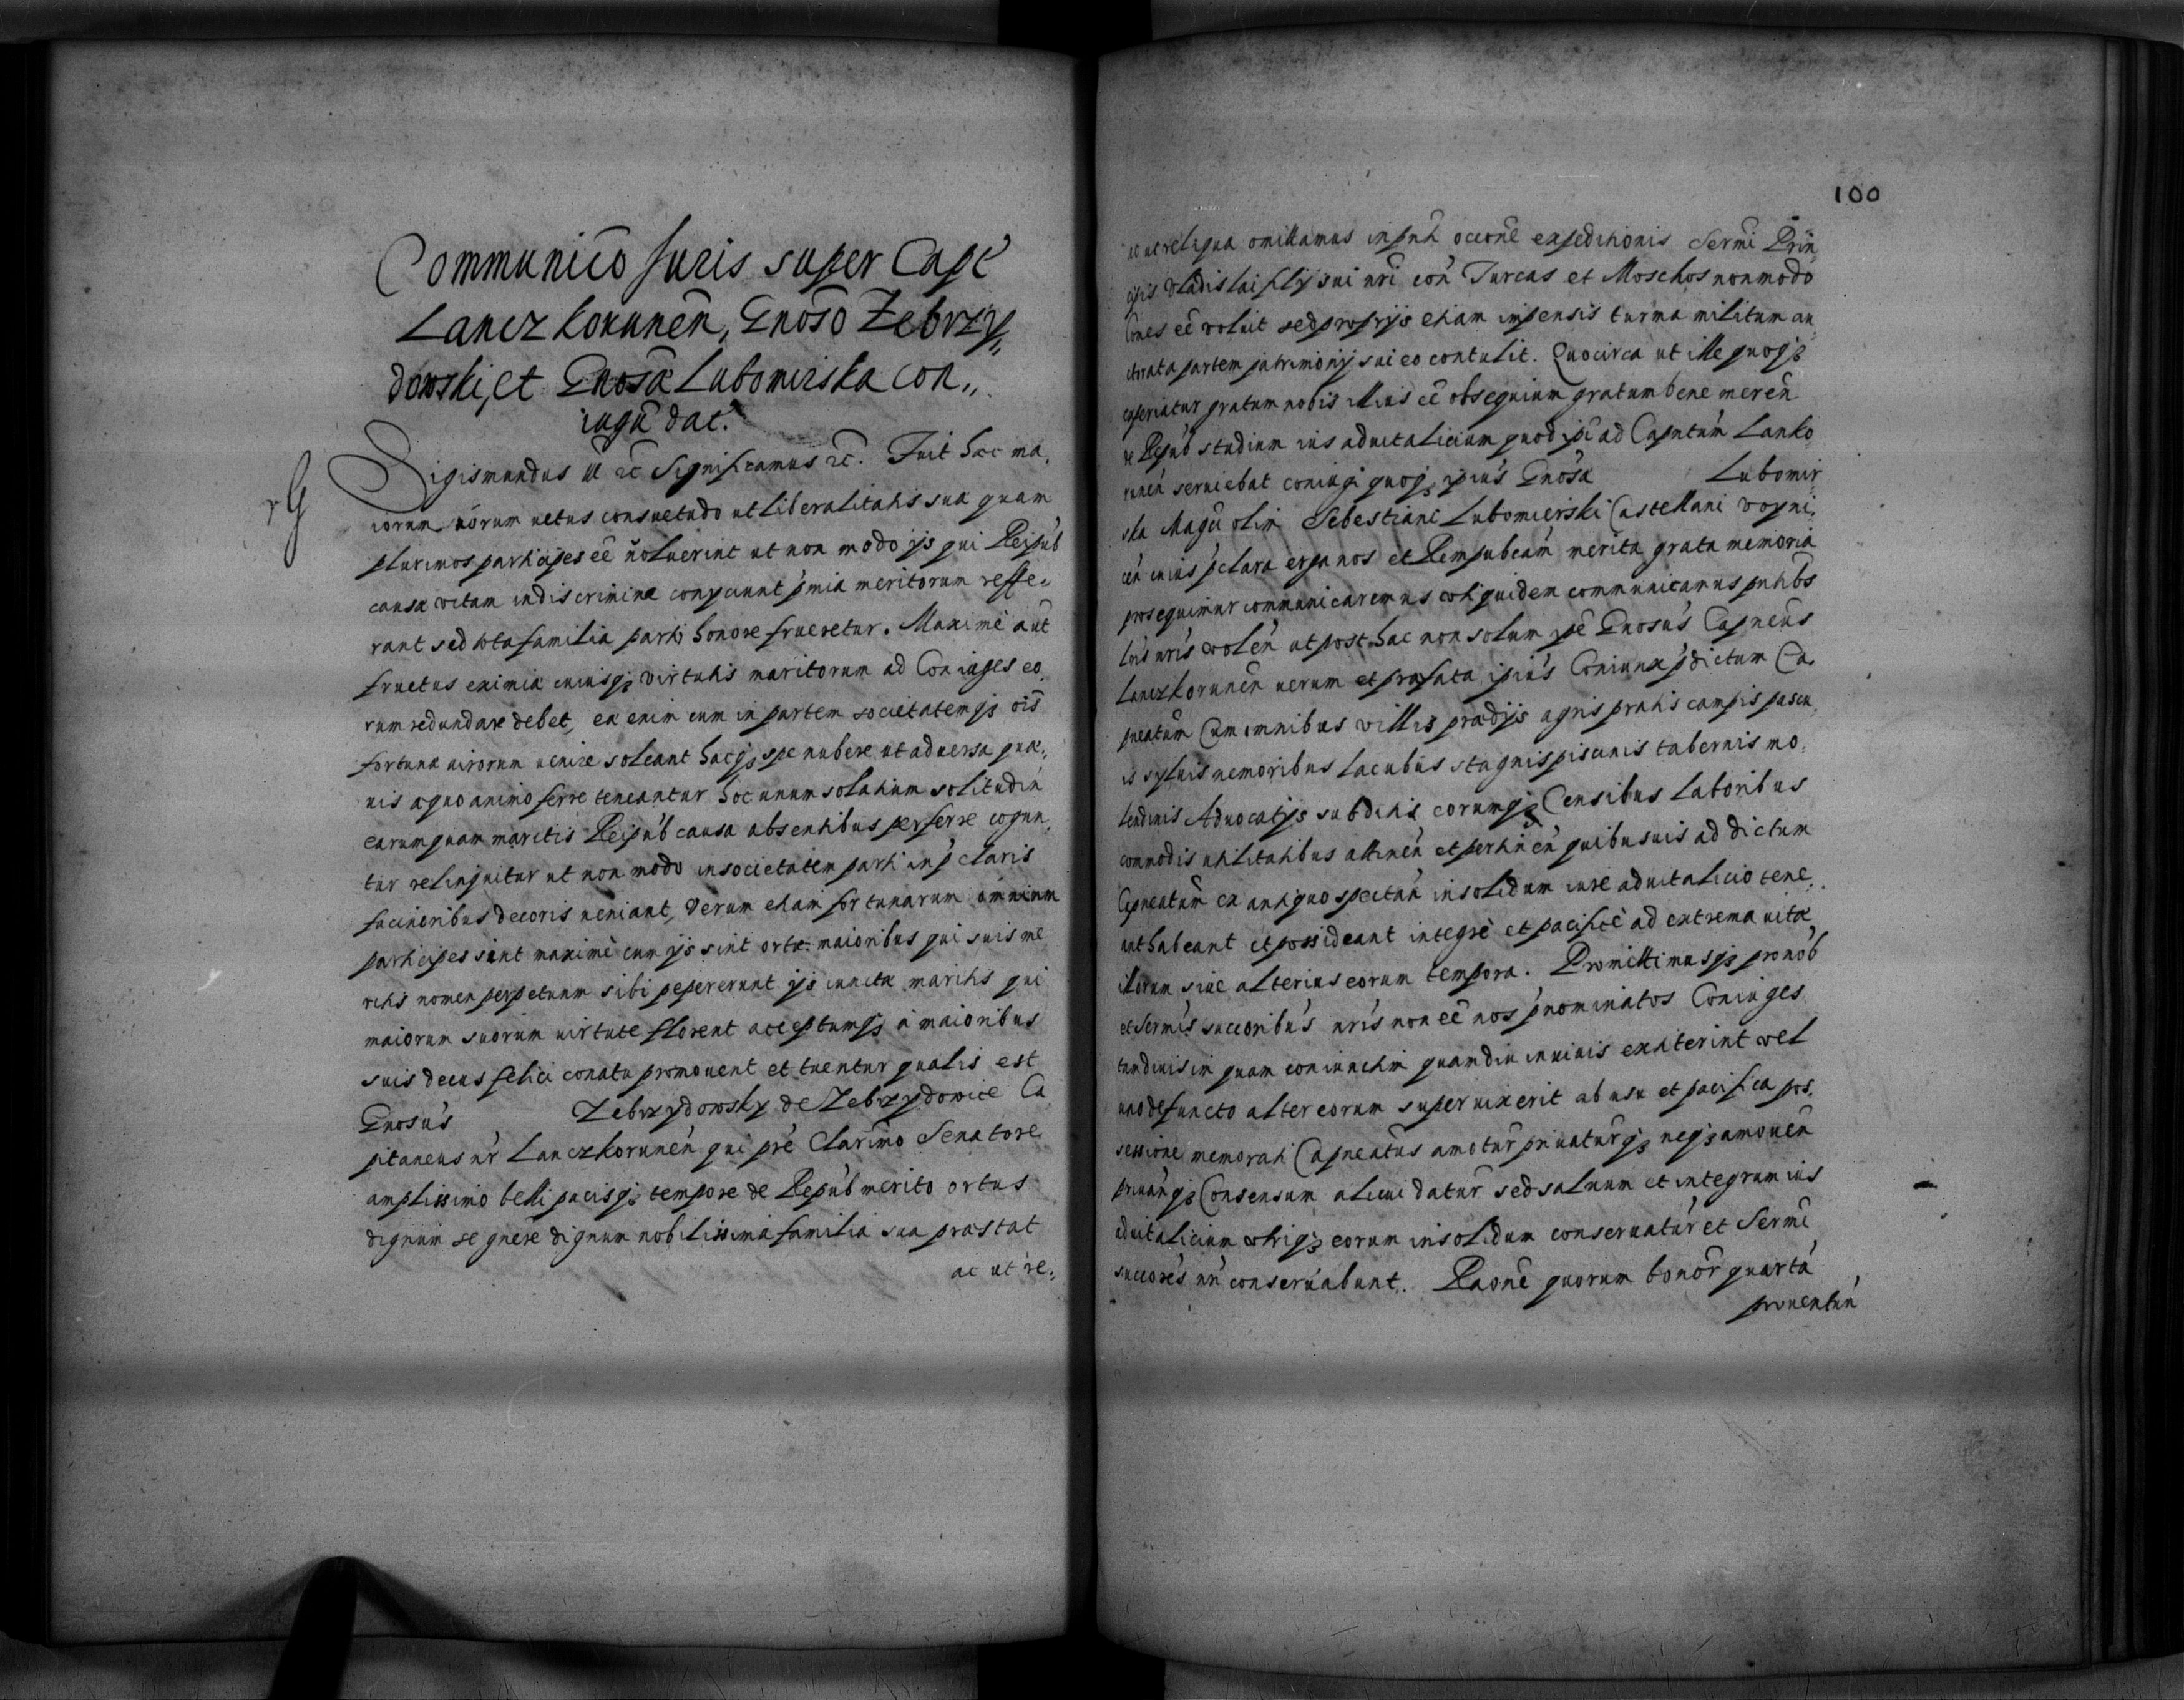 Communicõ Juris super Capt
Lanczkorunen, Gnoso Zebrzy„
dowski, et Gnosa Lubomirska con„
iugũ dat.
rG
Sigismundus III etc Significamus etc. Fuit hæc ma,
iorum ñorum uetus consuetudo ut liberalitatis suæ quam
plurimos participes eẽ uoluerint ut non modo ijs qui Reipub
causa vitam in discrimina conijciunt pmia meritorum reffe„
rant sed tota familia parti honore frueretur. Maximè aũt
fructus eximiæ cuiusq; virtutis maritorum ad Coniuges eo,
rum redundare debet, ea enim cum in partem societatemq; oĩs
fortunæ uirorum uenire soleant hacq; spe nubere ut aduersa quæ„
uis æquo animo ferre teneantur hoc unum solatium solitudin
earum quam maritis Reipub causa absentibus perferre cogun,
tur relinquitur ut non modo in societatem parti in pclaris
facinoribus decoris ueniant, Verum etiam fortunarum omnium
participes sint maximè cum ijs sint ortæ maioribus qui suis me
ritis nomen perpetuum sibi pepererunt ijs iunctæ maritis qui
maiorum suorum uirtute florent acceptumq; à maioribus
suis decus felici conatu promouent et tuentur qualis est
Gnosus Zebrzydowsky de Zebrzydowice Ca
pitaneus nr Lanczkorunen qui pre Clarimo Senatore
amplissimo belli pacisq; tempore de Repub merito ortus
dignum se gnere dignum nobilissima familia sua præstat
ac ut re„
100
ac ut reliqua omittamus in pnti occonẽ expeditionis Sermi Prin
cipis Vladislai filij sui nri con Turcas et Moschos non modo
Cones eẽ voluit sed proprijs etiam impensis turma militum au
ctorata partem patrimonij sui eo contulit. Quocirca ut ille quoq;
experiatur gratum nobis illius eẽ obsequium gratum bene meren
de Repub studium ius aduitalicium quod ipi ad Capntum Lanko
runen seruiebat coniugi quoq; ipius Gnosa Lubomir
ska Magci olim Sebestiani Lubomierski Castellani Voyni„
cen cuius pclara erga nos et Rempubcam merita grata memoria
prosequimur communicaremus voti quidem communicamus pntibs
lris nris volen ut post hac non solum ipe Gnosus Capneus
Lanczkorunen uerum et præfata ipius Coniunx pdictum Ca„
pneatum Cum omnibus villis prædijs agris pratis campis pascu,
is syluis nemoribus lacubus stagnis piscinis tabernis mo„
lendinis Aduocatijs subditis eorumq; Censibus laboribus
commodis utilitatibus attinen et pertinen quibusuis ad dictum
Capneatum ex antiquo spectan in solidum iure aduitalicio tene„
ant habeant et possideant integrè et pacificè ad extrema uitæ
illorum siue alterius eorum tempora. Promittimusq; pro nob
et Sermis succoribus nris non eẽ nos pnominatos Coniuges
tam diuisim quam coniunctim quamdiu in uiuis extiterint vel
uno defuncto alter eorum superuixerit ab usu et pacifica pos„
sessione memorati Capneatus amotur priuaturq; neq; amouen
priuanq; Consensum alicui datur sed saluum et integrum ius
aduitalicium vtriq; eorum in solidum conseruatur et Sermi
succores nri conseruabunt. Raone quorum bonor quarta
prouentuu